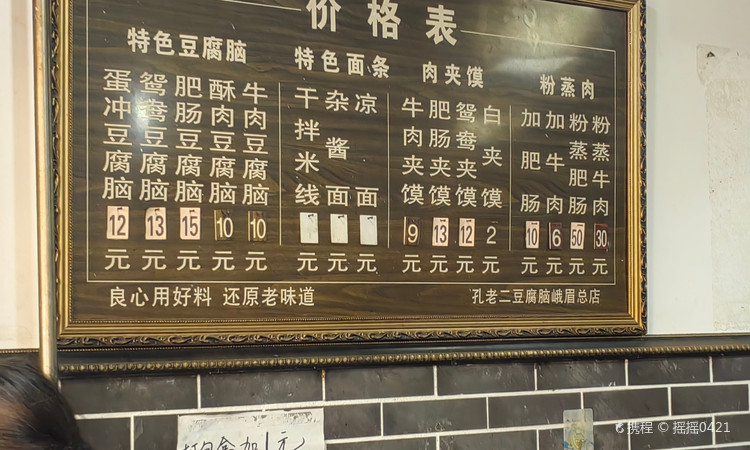 价格表
特色豆腐脑
蛋冲豆腐脑 12元
鸳鸯豆腐脑 13元
肥肠豆腐脑 15元
酥肉豆腐脑 10元
牛肉豆腐脑 10元
特色面条
干拌米线 元
杂酱面 元
凉面 元
肉夹馍
牛肉夹馍 9元
肥肠夹馍 13元
鸳鸯夹馍 12元
白夹馍 2元
粉蒸肉
加肥肠 10元
加牛肉 6元
粉蒸肥肠 50元
粉蒸牛肉 30元
良心用好料 还原老味道
孔老二豆腐脑峨眉总店
加1元
携程 © 摇摇0421